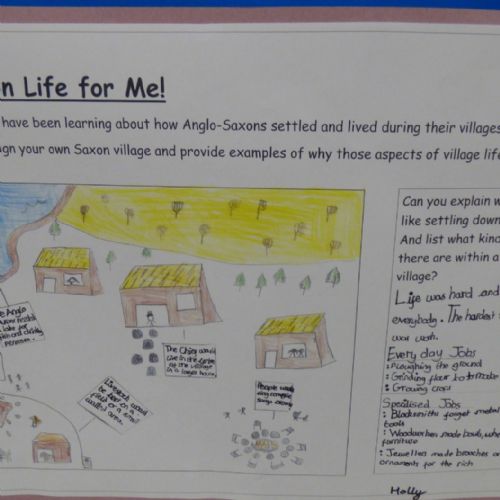 n Life for Me!
have been learning about how Anglo-Saxons settled and lived during their villages
ign your own Saxon village and provide examples of why those aspects of village life
Can you explain w
like settling down
And list what kind
there are within a
village?
Life was hard and
everybody. The hardest
was wash.
Every day Jobs
: Ploughing the ground
: Grinding flour to make
: Growing crops
Specilised Jobs
: Blacksmiths forget metal
tools
: Woodworkers made bowls, whe
furniture
: Jewellea made broaches or
ornaments for the rich
Holly
Anglo
lake for
The Chief would
live in the centre
of the village
in a large house
Livestock would
field or a small
walled area.
People would
campfire